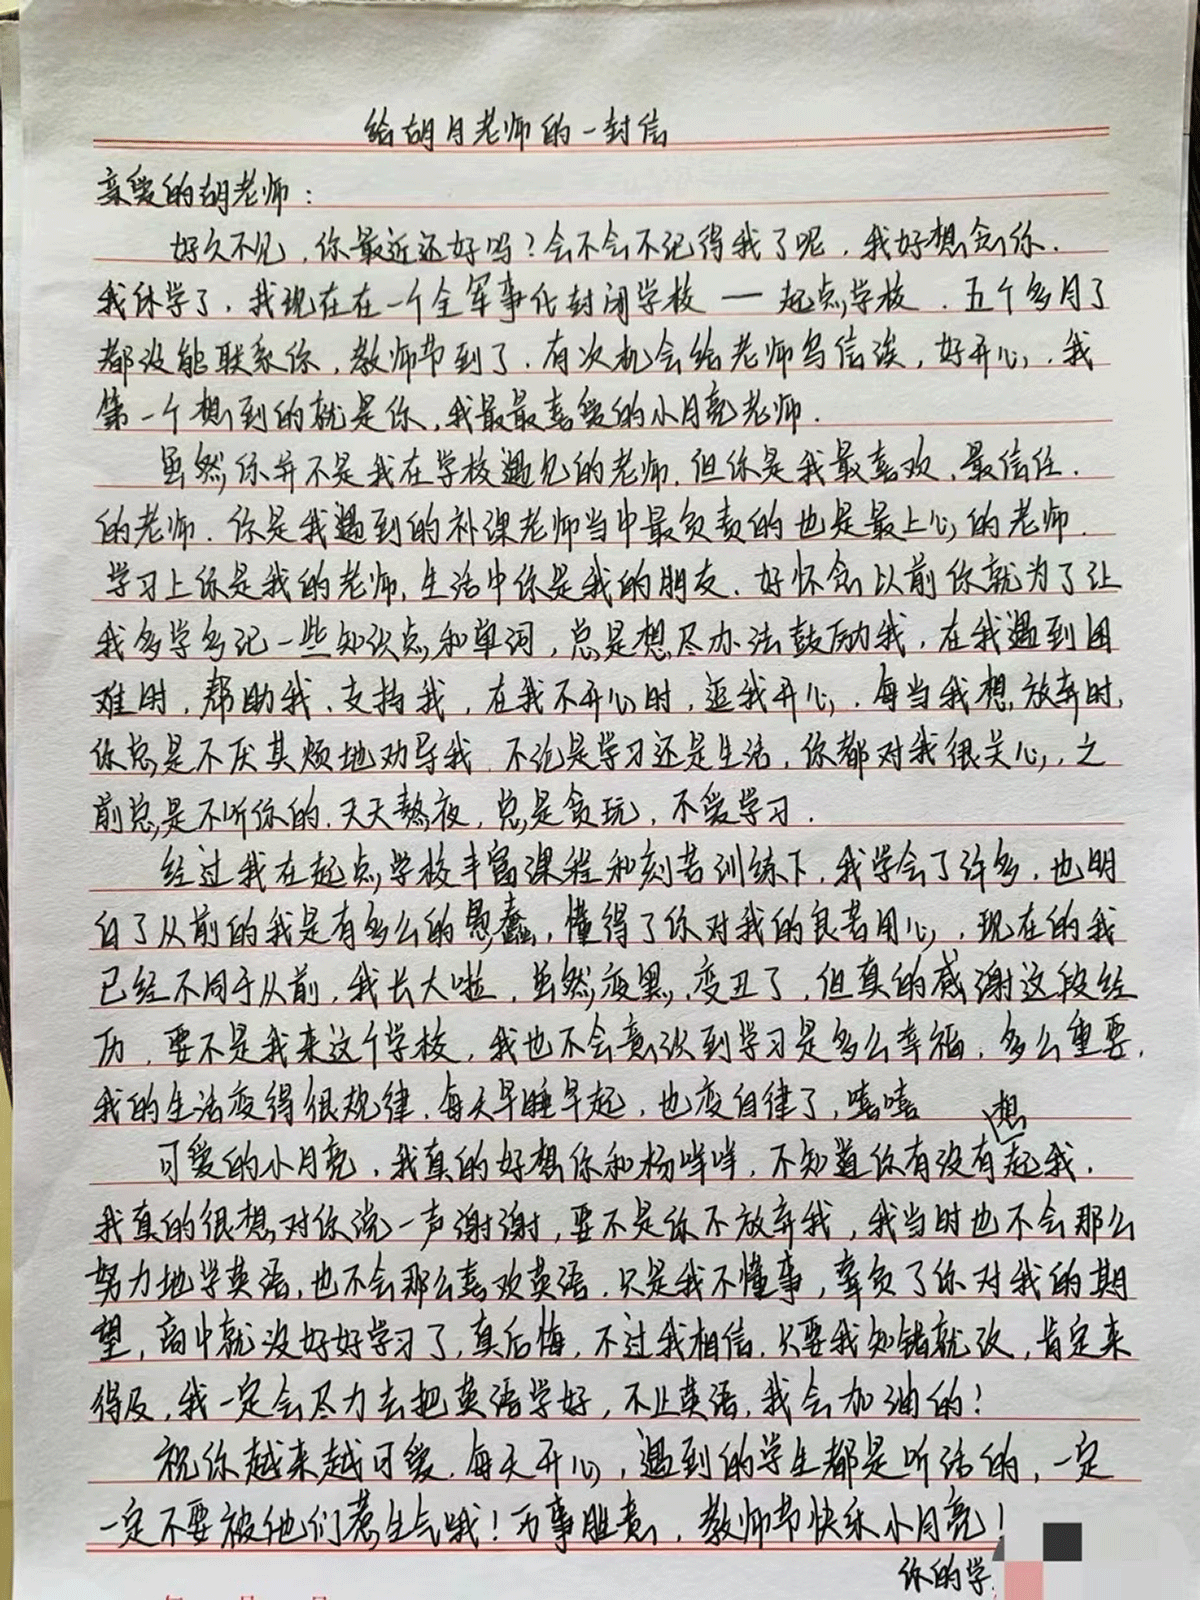 给胡月老师的一封信
亲爱的胡老师：
好久不见，你最近还好吗？会不会不记得我了呢，我好想念你．
我休学了，我现在在一个全军事化封闭学校——起点学校．五个多月了
都没能联系你，教师节到了．有次机会给老师写信诶，好开心，我
第一个想到的就是你，我最最喜爱的小月亮老师．
虽然你并不是我在学校遇见的老师．但你是我最喜欢、最信任．
的老师．你是我遇到的补课老师当中最负责的也是最上心的老师．
学习上你是我的老师，生活中你是我的朋友．好怀念以前你就为了让
我多学多记一些知识点和单词，总是想尽办法鼓励我，在我遇到困
难时，帮助我、支持我，在我不开心时，逗我开心，每当我想放弃时，
你总是不厌其烦地劝导我．不论是学习还是生活，你都对我很关心，之
前总是不听你的．天天熬夜，总是贪玩，不爱学习．
经过我在起点学校丰富课程和刻苦训练下，我学会了许多，也明
白了从前的我是有多么的愚蠢，懂得了你对我的良苦用心，现在的我
已经不同于从前，我长大啦，虽然变黑、变丑了，但真的感谢这段经
历，要不是我来这个学校，我也不会意识到学习是多么幸福，多么重要，
我的生活变得很规律．每天早睡早起，也变自律了，嘻嘻
可爱的小月亮，我真的好想你和杨咩咩，不知道你有没有想起我．
我真的很想对你说一声谢谢，要不是你不放弃我，我当时也不会那么
努力地学英语，也不会那么喜欢英语．只是我不懂事，辜负了你对我的期
望，高中就没好好学习了，真后悔，不过我相信．只要我知错就改，肯定来
得及，我一定会尽力去把英语学好，不止英语，我会加油的！
祝你越来越可爱．每天开心，遇到的学生都是听话的，一定
一定不要被他们惹生气哦！万事胜意，教师节快乐小月亮！
你的学